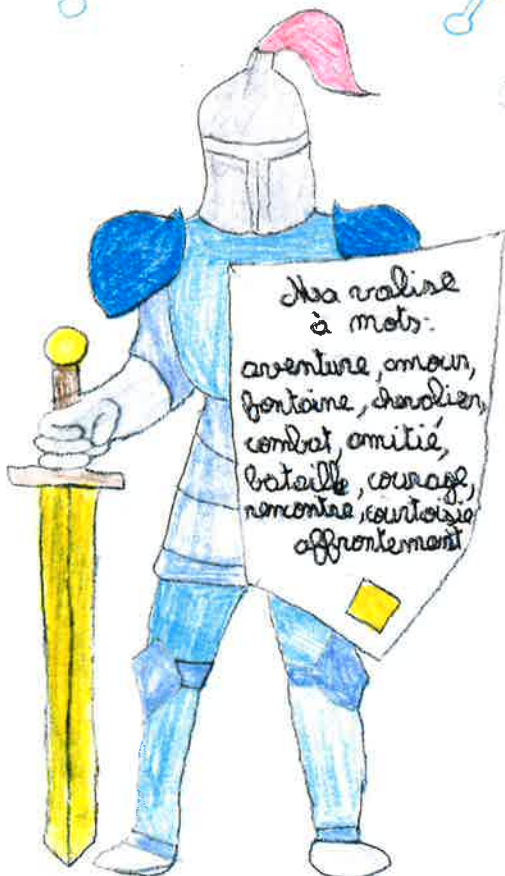 Ma valise
à mots:
aventure, amour,
fontaine, chevalier,
combat, amitié,
bataille, courage,
rencontre, courtoisie
affrontement